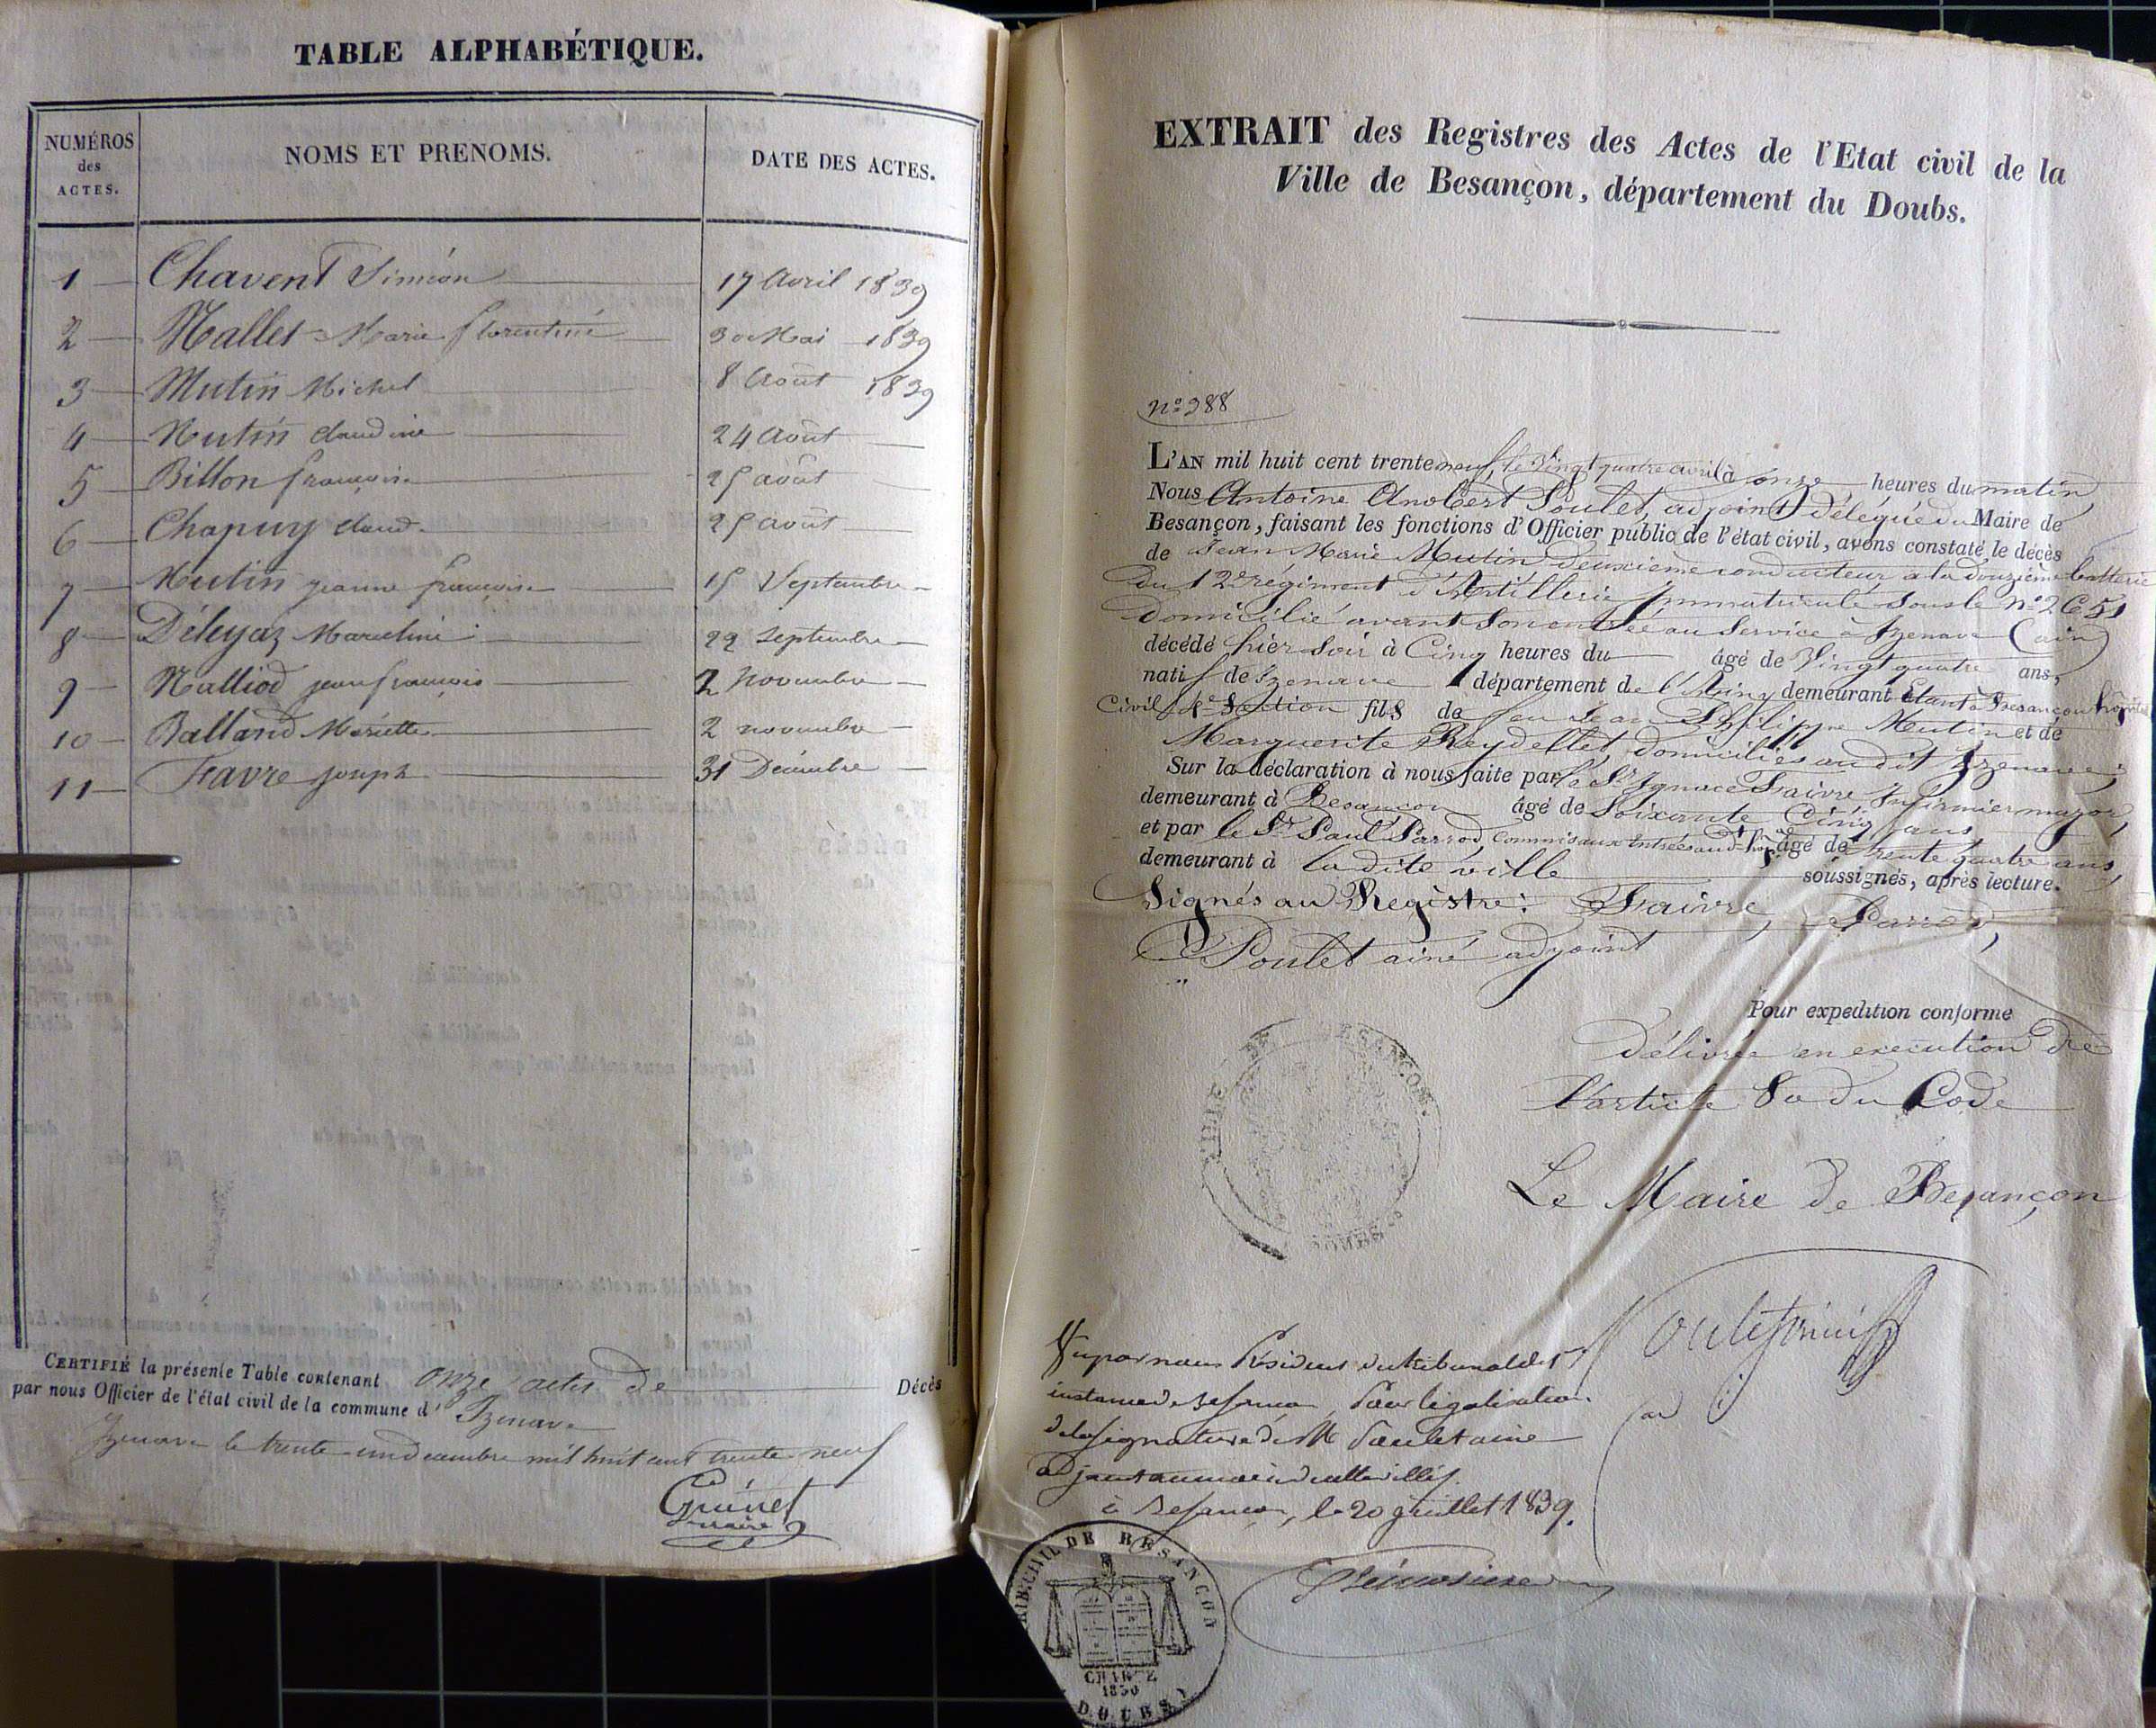 TABLE ALPHABÉTIQUE.
NUMÉROS des ACTES.
NOMS ET PRENOMS.
DATE DES ACTES.
1 Chavent Siméon 17 Avril 1839
2 Mallet Marie florentine 30 Mai 1839
3 Mutin Michel 8 Août 1839
4 Mutin Claudine 24 Août
5 Billon françoise 25 août
6 Chapuy Claud. 25 août
7 Mutin jeanne françoise 15 Septembre
8 Déleyaz Marceline 22 Septembre
9 Malliod jean françois 2 Novembre
10 Balland Mariette 2 novembre
11 Favre joseph 31 Décembre
CERTIFIÉ la présente Table contenant onze actes de Décès
par nous Officier de l'état civil de la commune d' Izenave
Izenave le trente un décembre mil huit cent trente neuf
Guinet
maire
EXTRAIT des Registres des Actes de l'Etat civil de la
Ville de Besançon, département du Doubs.
N.º 388
L'AN mil huit cent trente neuf, le Vingt quatre avril à onze heures du matin
Nous Antoine Anobert Poulet, adjoint délégué du Maire de
Besançon, faisant les fonctions d'Officier public de l'état civil, avons constaté le décès
de Jean Marie Mutin deuxième conducteur a la douzième batterie
du 12e régiment d'Artillerie immatriculé sous le n.º 2651
Domicilié avant son entrée au Service à Izenave (ain)
décédé hier soir à Cinq heures du âgé de Vingt quatre ans,
natif de Izenave département de l'Ain, demeurant étant à Besançon hôpital
Civil 1e Section fils de feu Jean Philippe Mutin et de
Marguerite Reydellet domiciliés audit Izenave;
Sur la déclaration à nous faite par le Sr Ignace Faivre Infirmier major,
demeurant à Besançon âgé de Soixante Cinq ans
et par le Sr Paul Parrod, Commis aux Entrées audt hop. âgé de trente quatre ans,
demeurant à ladite ville soussignés, après lecture.
Signés au Registre: Faivre, Parrod,
Poulet ainé adjoint
Pour expedition conforme
Délivrée en execution de
l'article 80 du Code
Le Maire de Besançon
VILLE DE BESANÇON
DOUBS
Vu par nous Président du tribunal de 1e
instance de Besançon, Pour légalisation
de la signature de M Poulet ainé
adjoint au maire de cette ville
à Besançon, le 20 juillet 1839.
TRIB. CIVIL DE BESANCON
CHARTE
1830
(DOUBS)